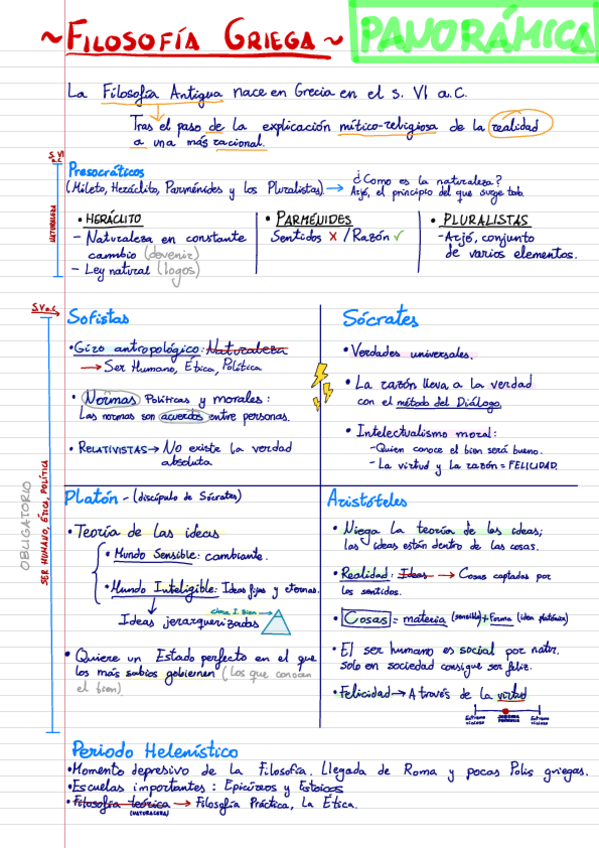 ~FILOSOFÍA GRIEGA~ PANORÁMICA
La Filosofía Antigua nace en Grecia en el s. VI a.C.
Tras el paso de la explicación mítico-religiosa de la realidad
a una más racional.
S. VI
a.C.
NATURALEZA
Presocráticos
(Mileto, Heráclito, Parménides y los Pluralistas) → ¿Como es la naturaleza?
Arjé, el principio del que surge todo.
• HERÁCLITO
- Naturaleza en constante
cambio (devenir)
- Ley natural (logos)
• PARMÉNIDES
Sentidos X / Razón ✓
• PLURALISTAS
- Arjé, conjunto
de varios elementos.
S.V a.C.
OBLIGATORIO
SER HUMANO, ÉTICA, POLÍTICA
Sofistas
• Giro antropológico: Naturaleza
→ Ser Humano, Ética, Política
• Normas Políticas y morales:
Las normas son acuerdos entre personas.
• RELATIVISTAS → No existe la verdad
absoluta
Sócrates
• Verdades universales.
• La razón lleva a la verdad
con el método del Diálogo.
• Intelectualismo moral:
- Quien conoce el bien será bueno.
- La virtud y la razón = FELICIDAD.
Platón - (discípulo de Sócrates)
• Teoría de las ideas
• Mundo Sensible: cambiante.
• Mundo Inteligible: Ideas fijas y eternas.
Ideas jerarquerizadas
• Quiere un Estado perfecto en el que
los más sabios gobiernen (los que conocen
el bien)
Aristóteles
• Niega la teoría de las ideas;
las ideas están dentro de las cosas.
• Realidad: Ideas → Cosas captadas por
los sentidos.
• Cosas = materia (sensible) + Forma (idea platónica)
• El ser humano es social por natur.
solo en sociedad consigue ser feliz.
• Felicidad → A través de la virtud
Extremo
vicioso
Extremo
vicioso
Periodo Helenístico
• Momento depresivo de la Filosofía. Llegada de Roma y pocas Polis griegas.
• Escuelas importantes: Epicúreos y Estoicos
• Filosofía teórica → Filosofía Práctica, La Ética.
(NATURALEZA)